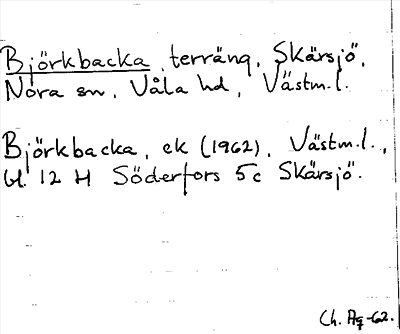 Björkbacka, terräng, Skärsjö,
Nora sn, Våla hd, Västm.l.
Björkbacka, ek (1962), Västm.l.,
bl. 12 H Söderfors 5c Skärsjö.
Ch. Ag-62.